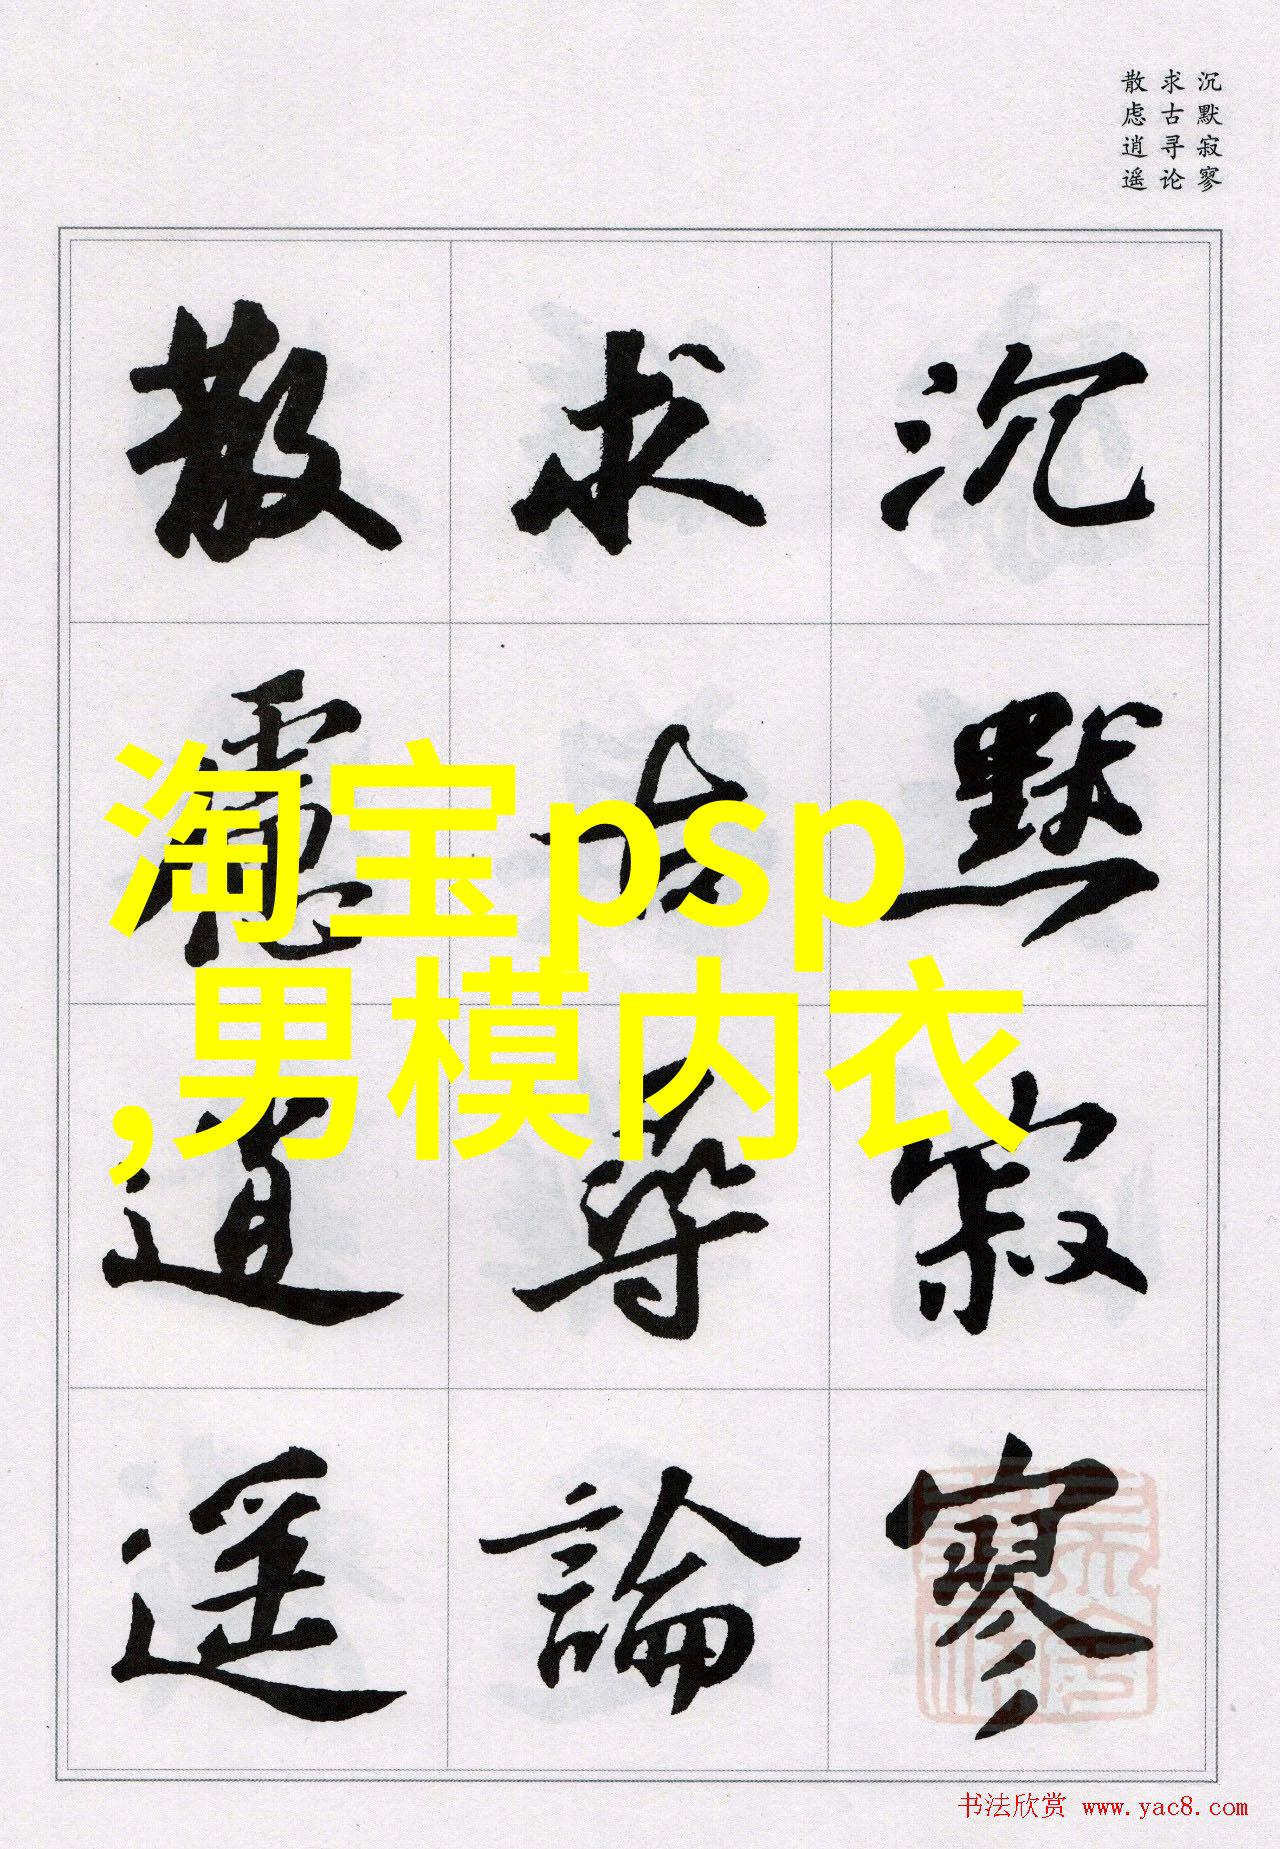 沉默寂寥
求古寻论
散虑逍遥
沉默寂寥
求古尋論
散慮逍遥
淘宝psp
,男模内衣
书法欣赏 www.yac8.com